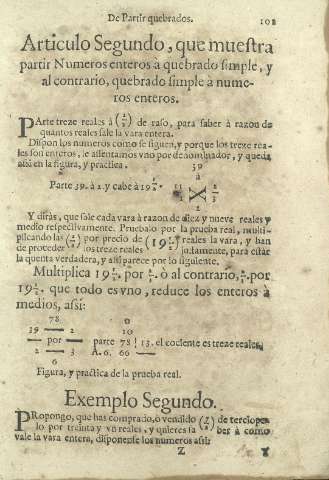 De Partir quebrados. 102
Articulo Segundo, que muestra
partir Numeros enteros à quebrado simple, y
al contrario, quebrado simple à nume-
ros enteros.
PArte treze reales à (2/3) de raso, para saber à razon de
quantos reales sale la vara entera.
Dispon los numeros como se siguen, y porque los treze rea-
les son enteros, se assientamos vno por denominador, y queda
assi en la figura, y practica. 39
à
Parte 39. à 2. y cabe à 19 1/2. 13 2
1 3
2
Y diràs, que sale cada vara à razon de diez y nueve reales y
medio respectivamente. Pruebalo por la prueba real, multi-
plicando las (2/3) por precio de (19 1/2) reales la vara, y han
de proceder los treze reales justamente, para estàr
la quenta verdadera, y assi parece por lo siguiente.
Multiplica 19 1/2. por 2/3. ò al contrario, 2/3. por
19 1/2. que todo es vno, reduce los enteros à
medios, assi:
78 0
39 — 2 10
— por — parte 78 | 13. el cociente es treze reales.
2 — 3 A. 6. 66 —
6
Figura, y practica de la prueba real.
Exemplo Segundo.
PRopongo, que has comprado, ò vendido de terciope-
lo por treinta y vn reales, y quieres saber à como
vale la vara entera, disponerse los numeros assi:
Z